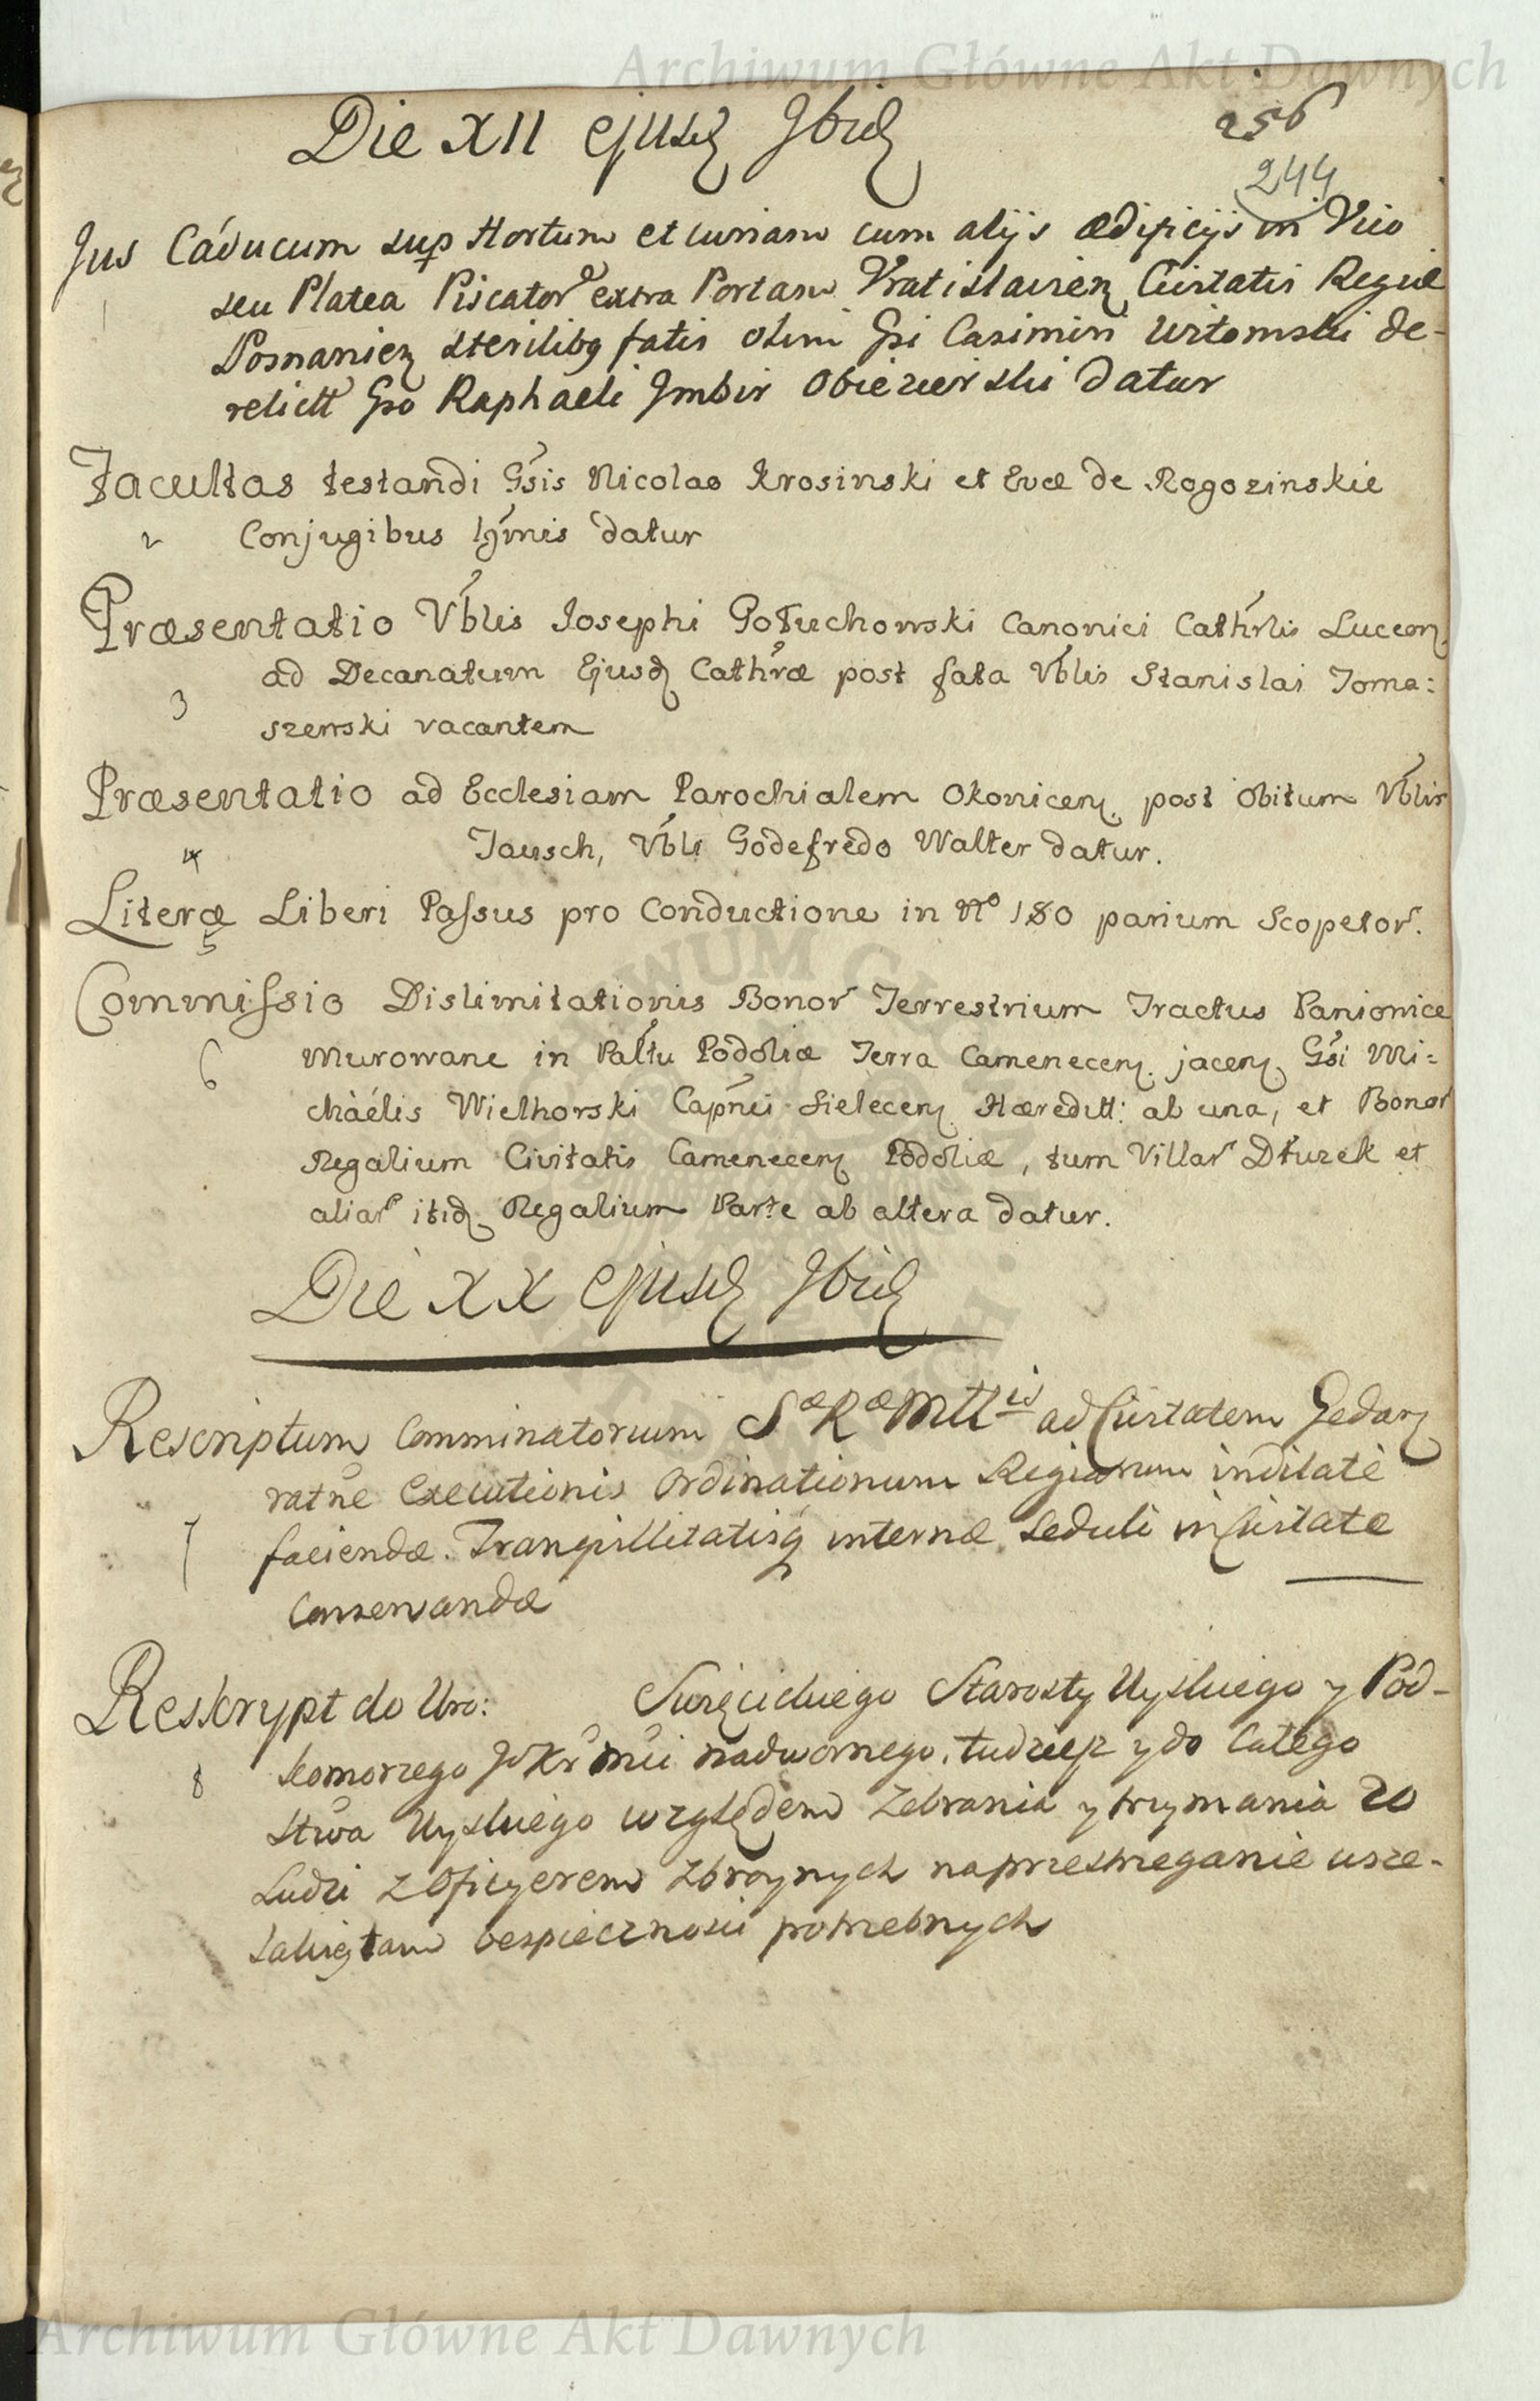 Archiwum Główne Akt Dawnych
256
244
Die XII ejusd 9bris
Jus Caducum sup Hortum et curiam cum alijs ædificijs in Vico
1
seu Platea Piscator extra Portam Vratislavien Civitatis Regiæ
Posnanien sterilibq fatis olim Gsi Casimiri Witomski de-
relictt Gso Raphaeli Jmbir Obiezierski datur
Facultas testandi Gsis Nicolao Krosinski et Evæ de Rogozinskie
2
Conjugibus lgmis datur
Præsentatio Vblis Josephi Gołuchowski Canonici Cathrlis Luceor
ad Decanatum Ejusd Cathræ post fata Vblis Stanislai Toma:
3
szewski vacantem
Præsentatio ad Ecclesiam Parochialem Okonicen. post obitum Vblis
4
Jausch, Vbli Godefredo Walter datur.
Literæ Liberi Passus pro Conductione in No 180 parium Scopetor.
5
Commissio Dislimitationis Bonor Terrestrium Tractus Paniowice
6
Murowane in Paltu Podoliæ Terra Camenecen. jacen. Gsi Mi=
chàélis Wielhorski Capnei Sielecen Hæreditt: ab una, et Bonor
Regalium Civitatis Camenecen Podoliæ, tum Villar Dłużek et
aliar itid. Regalium Parte ab altera datur.
Die XX ejusd 9bris
Rescriptum Comminatorium Sæ Ræ Mttis ad Civitatem Gedan
ratne Executionis Ordinationum Regiarum indilatè
7
faciendæ. Tranquillitatisq internæ seduli in Civitate
Conservandæ
Reskrypt do Uro: Swięcickiego Starosty Uyskiego y Pod-
8
komorzego JoKr Mci nadwornego, tudziesz y do Całego
stwa Uyskiego względem Zebrania y trzymania 20
Ludzi z Oficyerem Zbroynych na przestrzeganie wsze-
lakiey tam bespiecznosci potrzebnych
Archiwum Główne Akt Dawnych